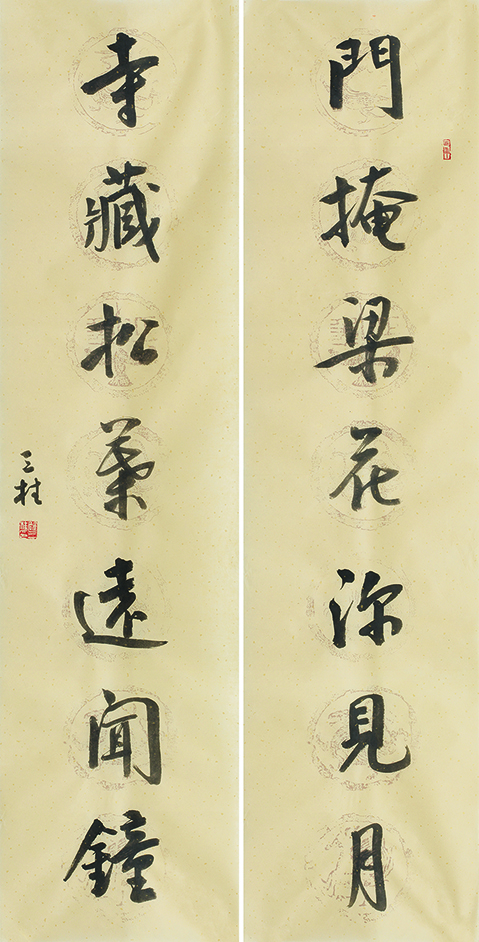 門掩梁花深見月
寺藏松葉遠聞鐘
三桂